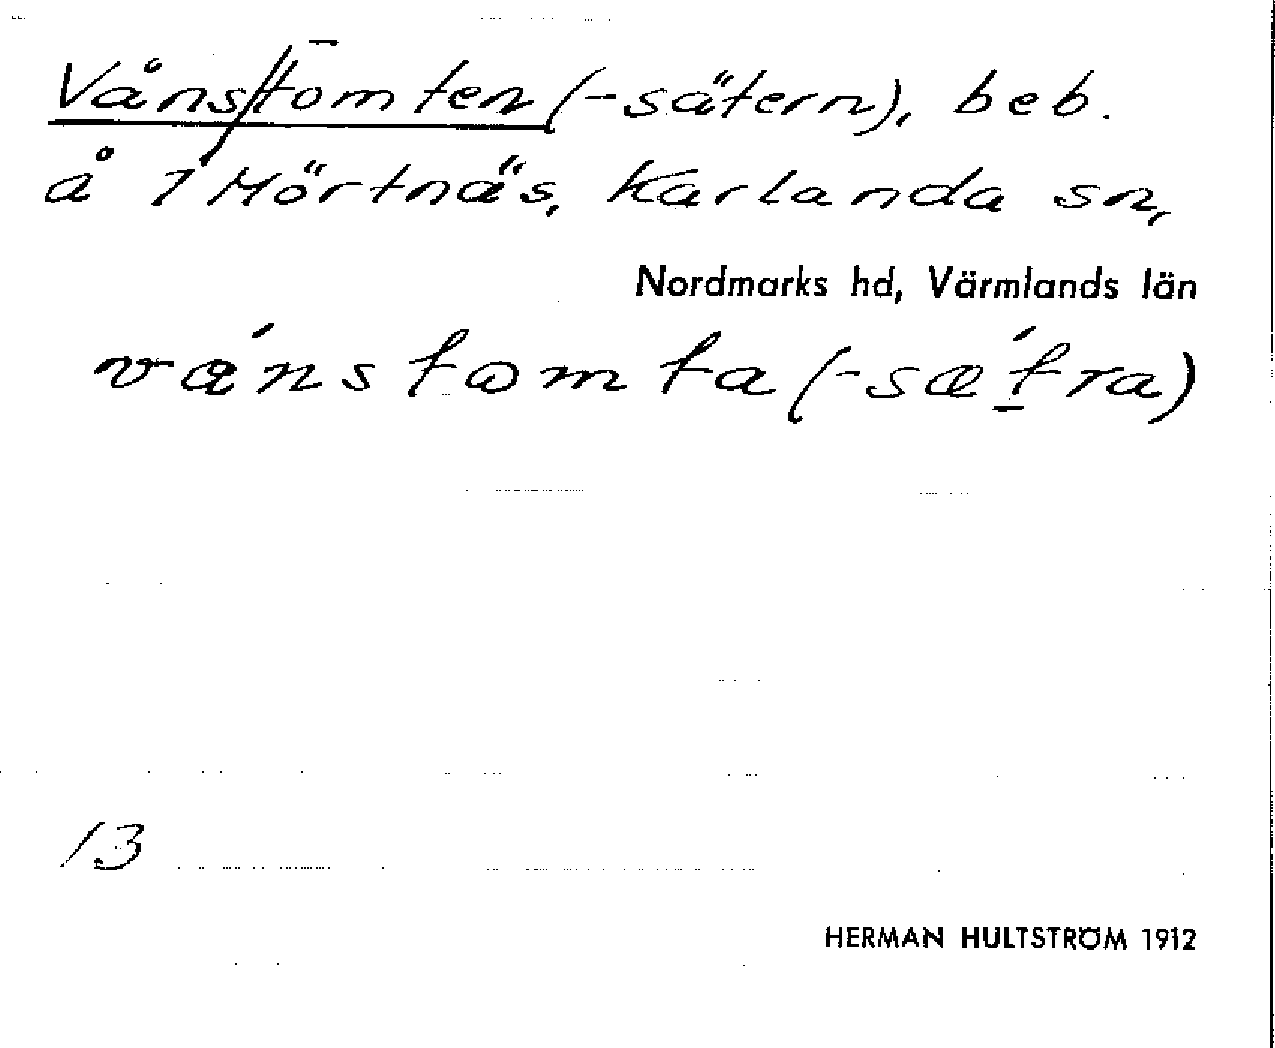 Vånstomten (-sätern), beb.
å 1 Mörtnäs, Karlanda sn,
Nordmarks hd, Värmlands län
vá̷nstωmta (-sǽtra)
13
HERMAN HULTSTRÖM 1912